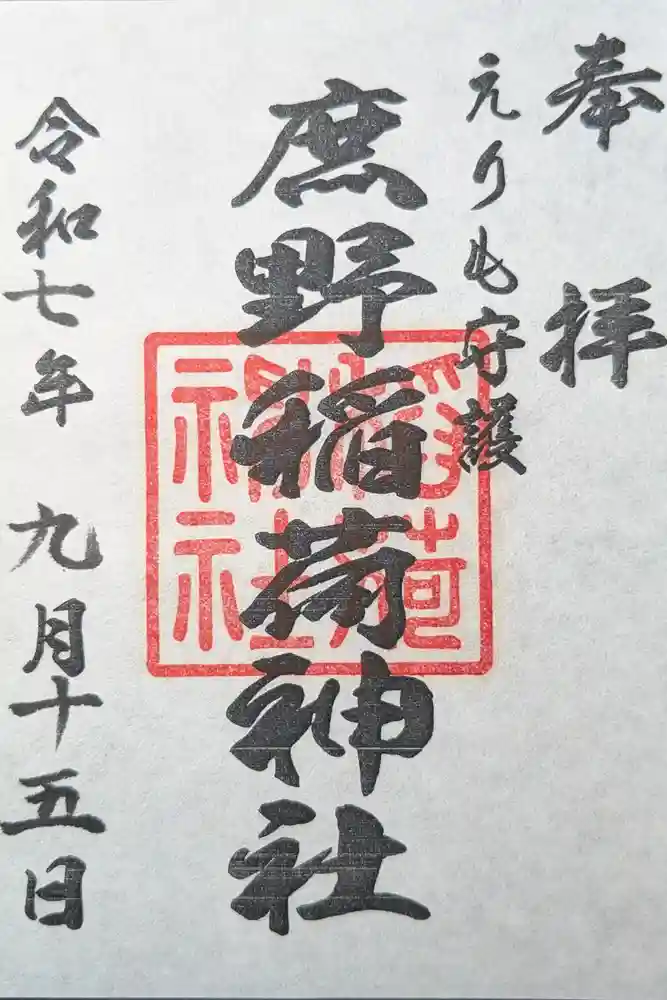 奉拝
えりも守護
庶野稲荷神社
稲荷神社
令和七年 九月十五日